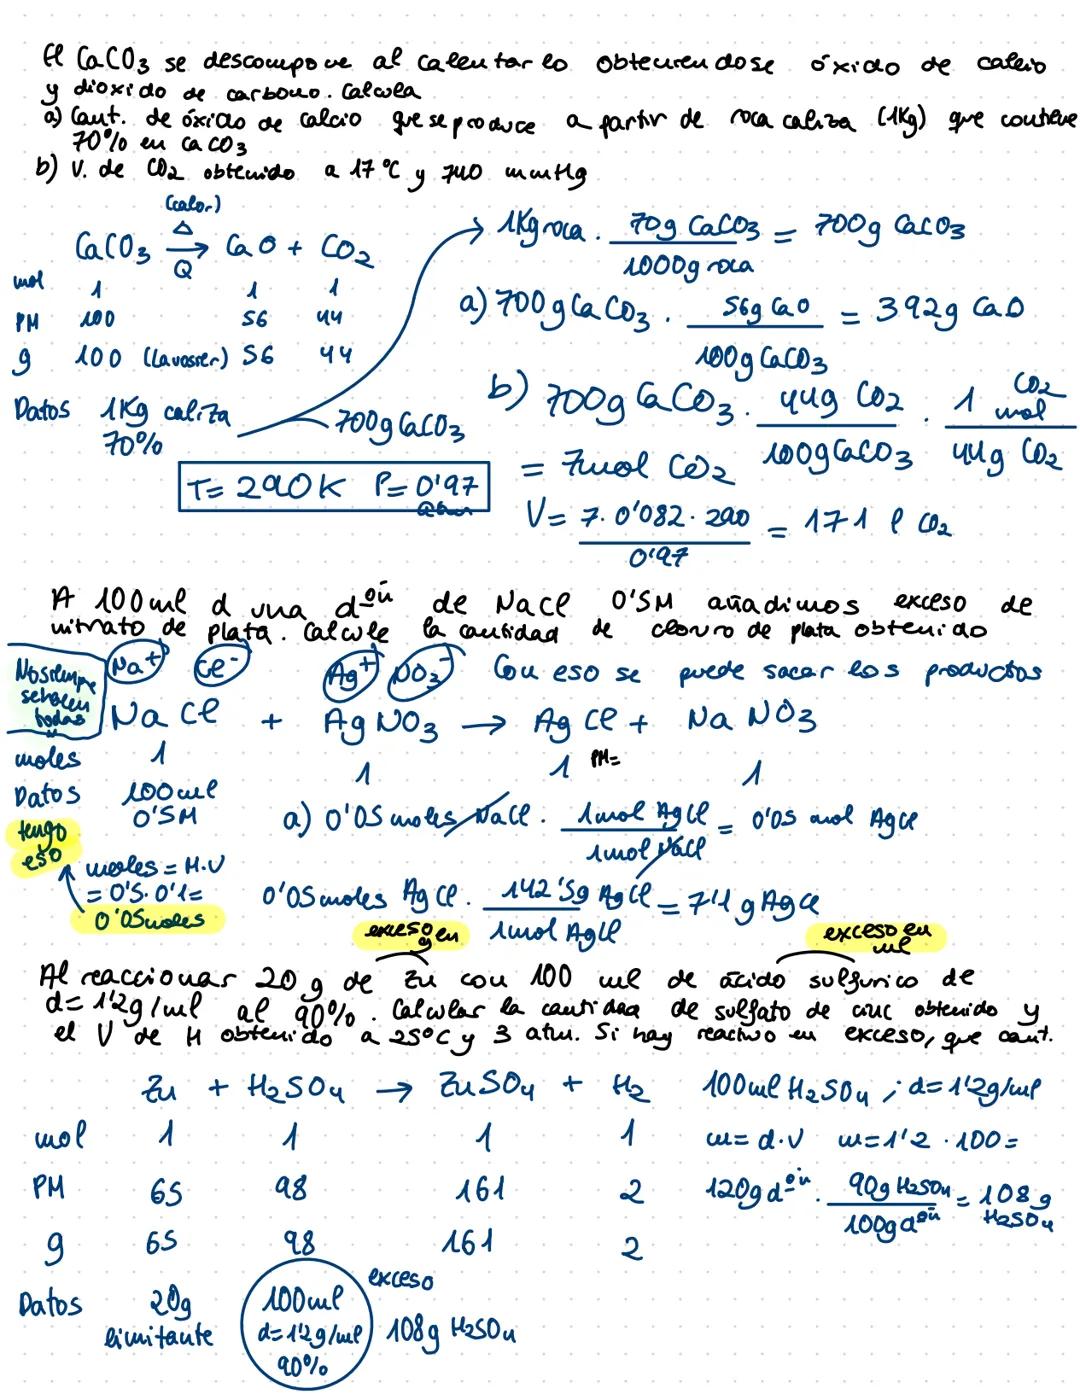 El CaCO3 se descompone al calentarlo obteniendose óxido de calcio
y dioxido de carbono. Calcula
a) Cant. de óxido de calcio que se produce a partir de roca caliza (1Kg) que contiene
70% en CaCO3
b) V. de CO2 obtenido a 17 ºC y 740 mmHg
(calor)
CaCO3 Δ→Q CaO + CO2
mol 1 1 1
PM 100 56 44
g 100 (Lavosier) 56 44
Datos 1Kg caliza 700g CaCO3
70%
T= 290K P= 0'97 atm
1Kg roca . 70g CaCO3 / 1000g roca = 700g CaCO3
a) 700g CaCO3 . 56g CaO / 100g CaCO3 = 392g CaO
b) 700g CaCO3 . 44g CO2 / 100g CaCO3 . 1 mol CO2 / 44g CO2
= 7mol CO2
V= 7.0'082.290 / 0'97 = 171 l CO2
A 100ml d una dºⁿ de NaCl 0'5M añadimos exceso de
nitrato de plata. Calcule la cantidad de cloruro de plata obtenido
No siempre se hacen todas
Na+ Cl- Ag+ NO3- Con eso se puede sacar los productos
NaCl + AgNO3 → AgCl + NaNO3
moles 1 1 1 PM= 1
Datos 100ml
0'5M
tengo eso
moles = M.V
= 0'5.0'1=
0'05moles
a) 0'05moles NaCl . 1mol AgCl / 1mol NaCl = 0'05 mol AgCl
0'05moles AgCl . 142'5g AgCl / 1mol AgCl = 7'1 g AgCl
exceso en g exceso en ml
Al reaccionar 20 g de Zn con 100 ml de ácido sulfurico de
d= 1'2g/ml al 90%. Calcular la cantidad de sulfato de cinc obtenido y
el V de H obtenido a 25ºC y 3 atm. Si hay reactivo en exceso, que cant.
Zn + H2SO4 → ZnSO4 + H2
mol 1 1 1 1
PM 65 98 161 2
g 65 98 161 2
Datos 20g 100ml exceso
limitante d=1'2g/ml 108g H2SO4
90%
100ml H2SO4 ; d=1'2g/ml
m= d.V m=1'2 .100=
120g dºⁿ . 90g H2SO4 / 100g dºⁿ = 108g H2SO4